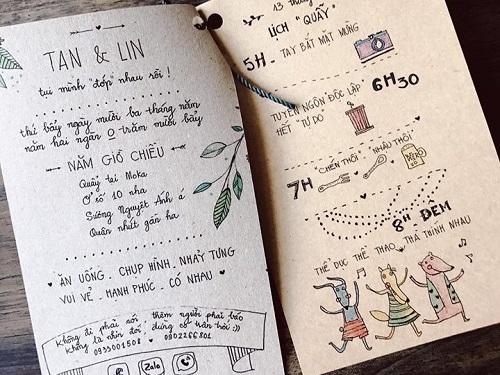 TAN & LIN
tụi mình "đớp" nhau rồi !
thứ bảy ngày mười ba tháng năm
năm hai ngàn 0 trăm mười bảy
NĂM GIỜ CHIỀU
Quẩy tại Moka
Ở số 10 nha
Sương Nguyệt Ánh á
Quận nhứt gần hà
ĂN UỐNG . CHỤP HÌNH . NHẢY TƯNG
VUI VẺ . HẠNH PHÚC . CÓ NHAU
Không đi phải nói , thêm người phải báo
Không là nhịn đói, đừng có trăn trối :))
0933001508 ♥ 0902266801
Zalo
13 tháng
LỊCH "QUẨY"
5H - TAY BẮT MẶT MỪNG
TUYÊN NGÔN ĐỘC LẬP 6H30
HẾT "TỰ DO"
7H CHÉN THÔI NHẬU THÔI
BEER
8H ĐÊM
THỂ DỤC THỂ THAO . THẢ THÍNH NHAU